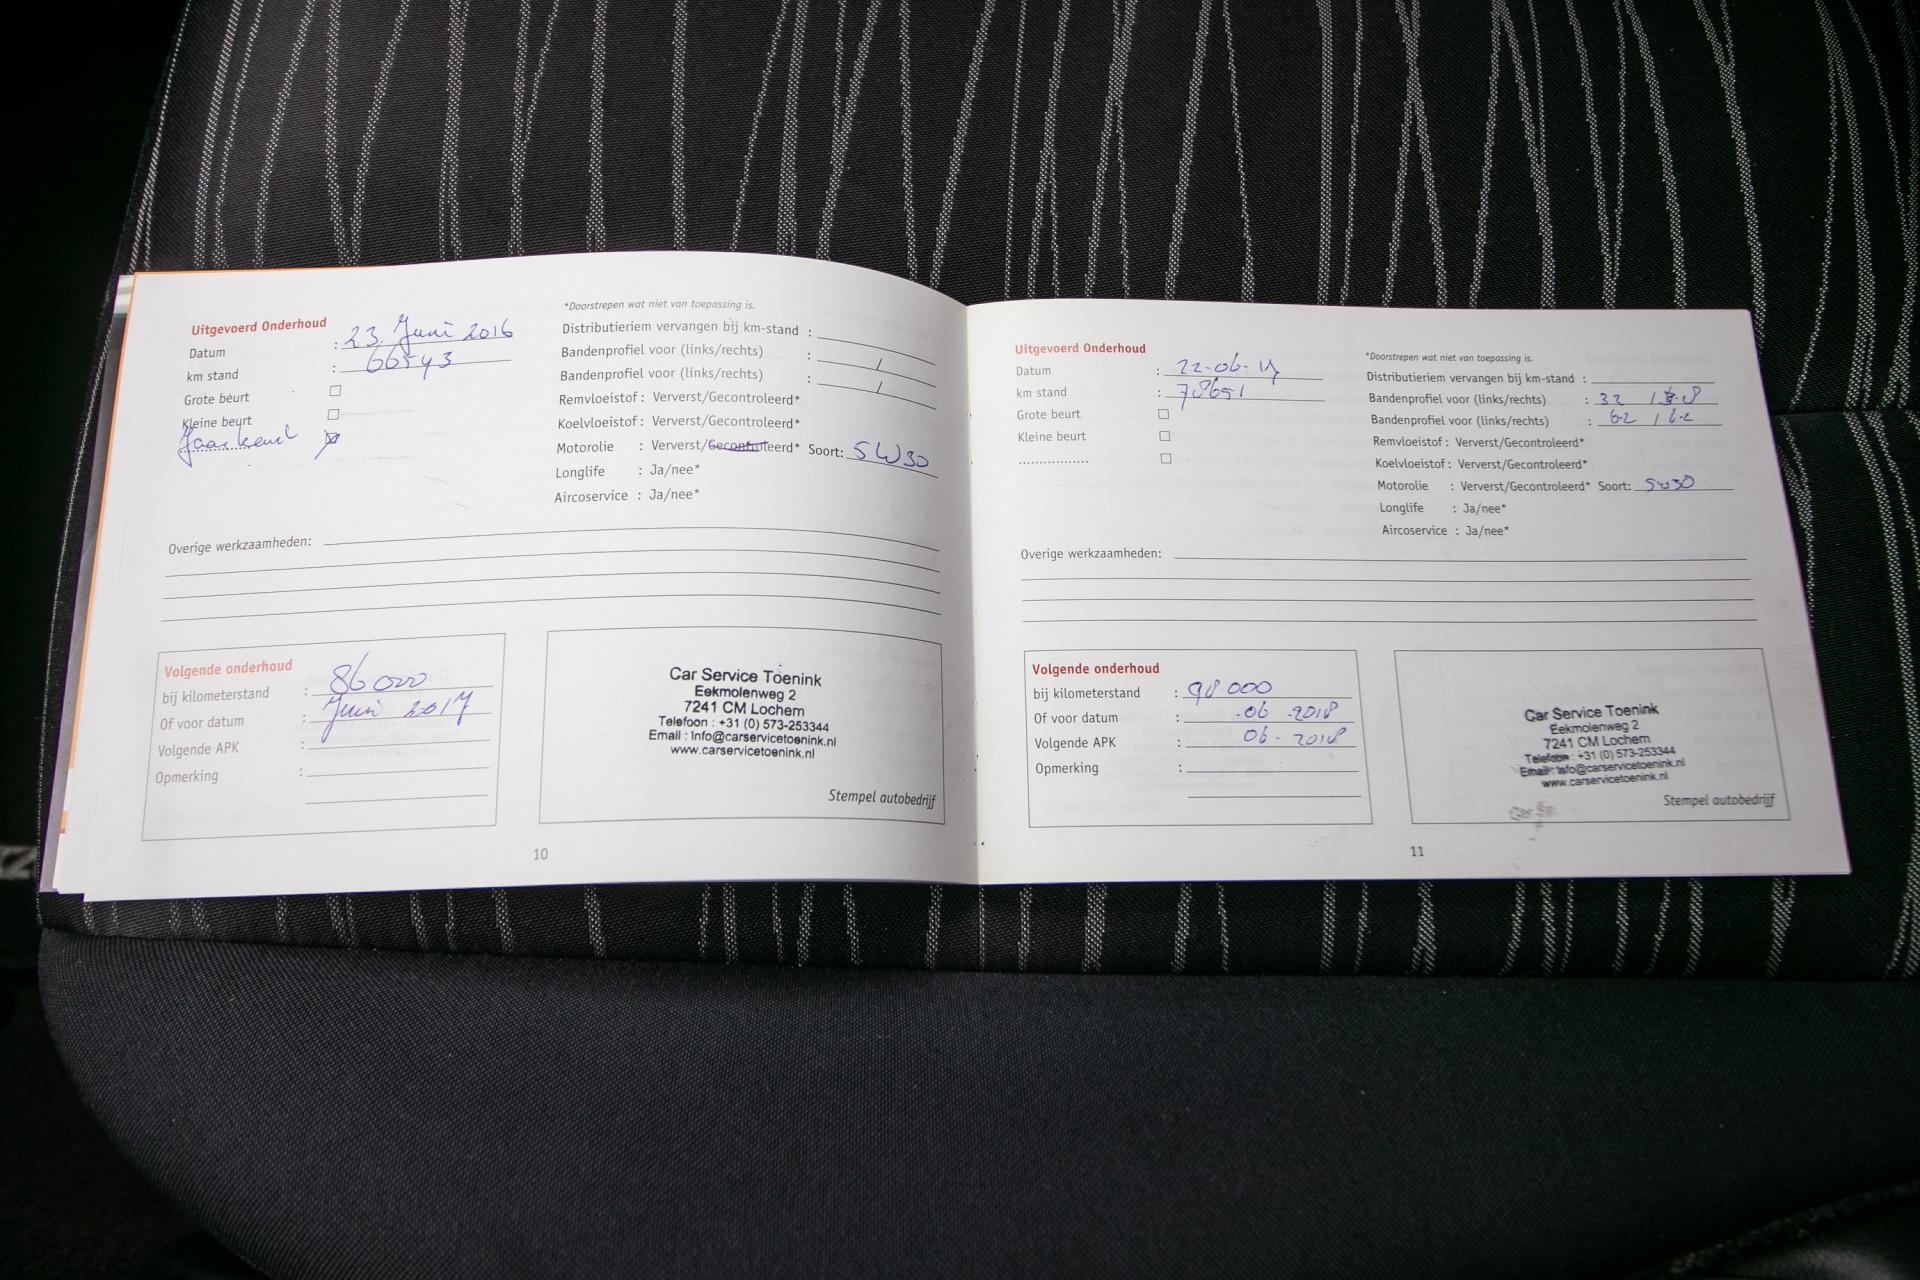 Uitgevoerd Onderhoud
Datum : 23 Juni 2016
km stand : 66543
Grote beurt
Kleine beurt
*Doorstrepen wat niet van toepassing is.
Distributieriem vervangen bij km-stand :
Bandenprofiel voor (links/rechts) : /
Bandenprofiel voor (links/rechts) : /
Remvloeistof : Ververst/Gecontroleerd*
Koelvloeistof : Ververst/Gecontroleerd*
Motorolie : Ververst/Gecontroleerd* Soort: 5W30
Longlife : Ja/nee*
Aircoservice : Ja/nee*
Overige werkzaamheden:
Volgende onderhoud
bij kilometerstand : 86000
Of voor datum : Juni 2017
Volgende APK :
Opmerking :
Car Service Toenink
Eekmolenweg 2
7241 CM Lochem
Telefoon : +31 (0) 573-253344
Email : info@carservicetoenink.nl
www.carservicetoenink.nl
Stempel autobedrijf
10
Uitgevoerd Onderhoud
Datum : 22-06-17
km stand : 78651
Grote beurt
Kleine beurt
.................
*Doorstrepen wat niet van toepassing is.
Distributieriem vervangen bij km-stand :
Bandenprofiel voor (links/rechts) : 32 /
Bandenprofiel voor (links/rechts) : 6-2 / 6-2
Remvloeistof : Ververst/Gecontroleerd*
Koelvloeistof : Ververst/Gecontroleerd*
Motorolie : Ververst/Gecontroleerd* Soort: 5w30
Longlife : Ja/nee*
Aircoservice : Ja/nee*
Overige werkzaamheden:
Volgende onderhoud
bij kilometerstand : 98000
Of voor datum : -06-2018
Volgende APK : 06-2018
Opmerking :
Car Service Toenink
Eekmolenweg 2
7241 CM Lochem
Telefoon : +31 (0) 573-253344
Email : info@carservicetoenink.nl
www.carservicetoenink.nl
Stempel autobedrijf
11